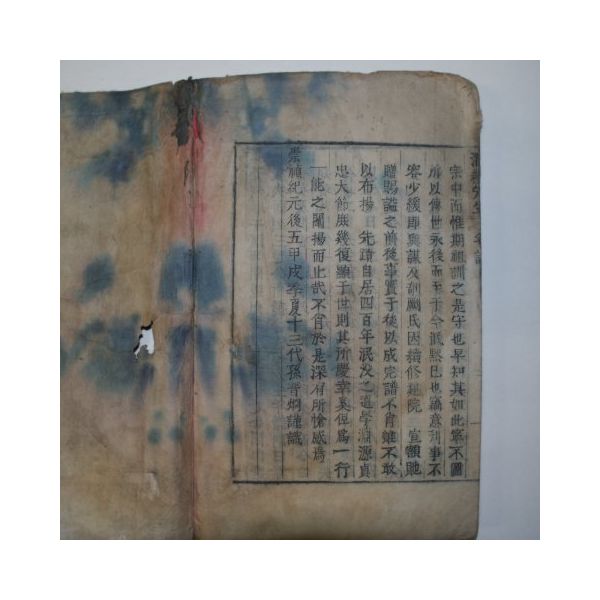 宗中而惟期祖訓之是守也早知其如此寧不圖
所以傳世永後而至于今泯黙已也竊意刋事不
容少緩即與謀及訓颺氏因續修建院 宣額貤
贈賜謚之前後事實于後以成完譜不肖雖不敢
以布揚 先蹟自居四百年泯没之道學淵源貞
忠大節庶幾復顯于世則其所慶幸奚但爲一行
一能之闡揚而止哉不肖於是深有所愴感焉
崇禎紀元後五甲戌季夏十三代孫晋烱謹識